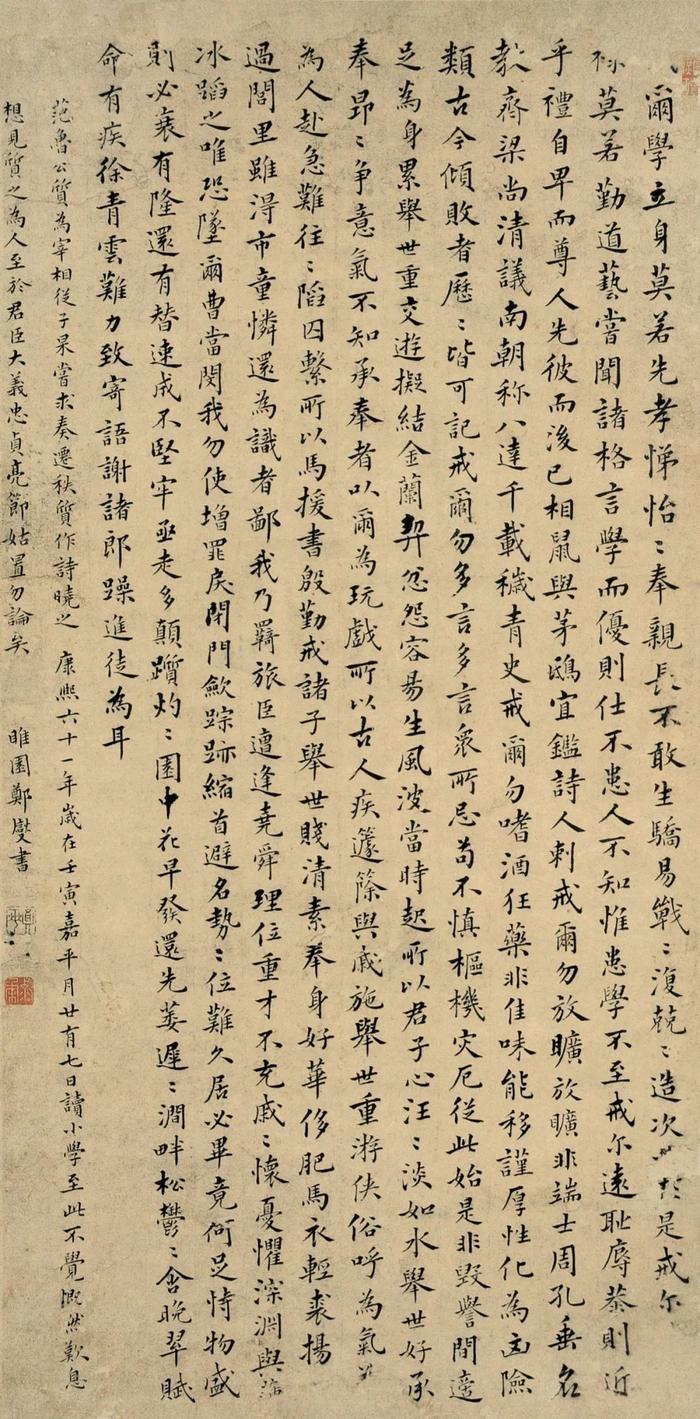 爾學立身莫若先孝悌怡〻奉親長不敢生驕易戰〻復兢〻造次於是戒尔
莫若勤道藝嘗聞諸格言學而優則仕不患人不知惟患學不至戒尔遠恥辱恭則近
乎禮自卑而尊人先彼而後已相鼠與茅鴟宜鑑詩人刺戒爾勿放曠放曠非端士周孔垂名
教齊梁尚清議南朝称八達千載穢青史戒爾勿嗜酒狂藥非佳味能移謹厚性化為凶險
類古今傾敗者歷〻皆可記戒爾勿多言多言衆所忌苟不慎樞機灾厄從此始是非毀譽間適
足為身累舉世重交遊擬結金蘭契忿怨容易生風波當時起所以君子心汪〻淡如水舉世好承
奉昂〻争意氣不知承奉者以爾為玩戲所以古人疾籧篨與戚施舉世重游俠俗呼為氣
為人赴急難往〻陷囚繫所以馬援書殷勤戒諸子舉世賤清素奉身好華侈肥馬衣輕裘揚
過閭里雖得市童憐還為識者鄙我乃羇旅臣遭逢堯舜理位重才不充戚〻懷憂懼深淵與
冰蹈之唯恐墜爾曹當閔我勿使增罪戾閉門歛踪跡縮首避名勢〻位難久居必畢竟何足恃物盛
則必衰有隆還有替速成不堅牢亟走多顛躓灼〻園中花早發還先萎遲〻澗畔松鬱〻含晚翠賦
命有疾徐青雲難力致寄語謝諸郎躁進徒為耳
范魯公質為宰相從子杲嘗求奏遷秩質作詩曉之 康熙六十一年歲在壬寅嘉平月廿有七日讀小學至此不覺慨然歎息
想見質之為人至於君臣大義忠貞亮節姑置勿論矣 睢園鄭燮書